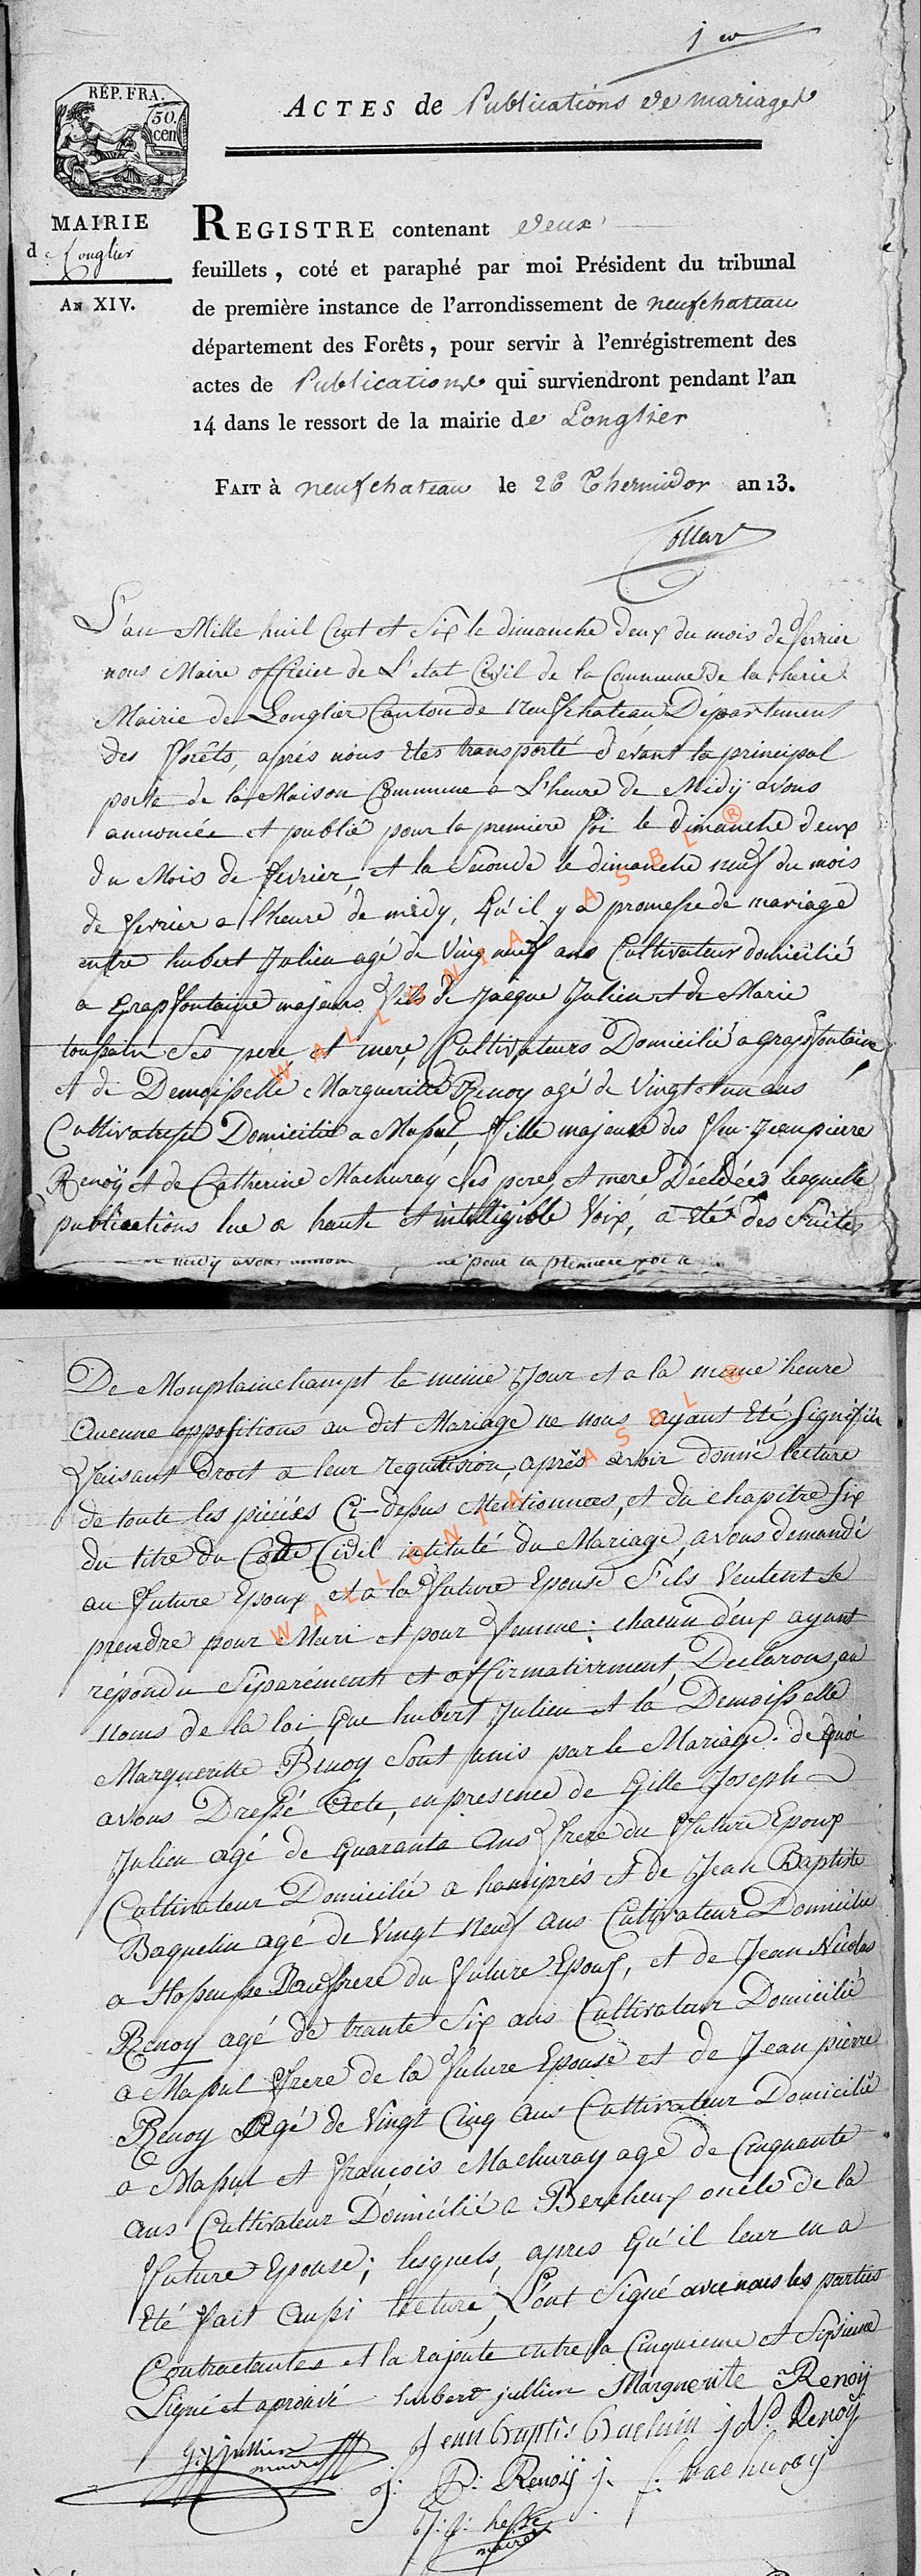 1er
RÉP. FRA.
50.
cen
ACTES de Publications de mariages
MAIRIE
de Longlier
AN XIV.
REGISTRE contenant deux
feuillets, coté et paraphé par moi Président du tribunal
de première instance de l'arrondissement de neufchateau
département des Forêts, pour servir à l'enrégistrement des
actes de Publications qui surviendront pendant l'an
14 dans le ressort de la mairie de Longlier
FAIT à neufchateau le 26 Thermidor an 13.
Collard
L'an Mille huit Cent et Six le dimanche deux du mois de fevrier
nous Maire officier de L'etat Civil de la Commune de la
Mairie de Longlier Canton de neufchateau Département
des forêts, aprés nous etes transporté devant la principal
porte de la Maison Commune a L'heure de Midÿ avons
annoncée et publié pour la premiere foi le dimanche deux
du Mois de fevrier, et la Seconde le dimanche neuf du mois
de fevrier a l'heure de midy, Qu'il y a promesse de mariage
entre hubert Julien agé de Ving neuf ans Cultivateur domicilié
a grapfontaine majeur fils de Jacque Julien et de Marie
toussain Ses pere et mere, Cultivateurs Domicilié a grapfontaine
et de Demoisselle Margueritte Renoy agé de Vingt et un ans
Cultivatresse Domicilié a Massul, fille majeure des feu Jeanpierre
Renoÿ et de Catherine Machuray Ses pere, et mere Décédées lesquelle
publications lue a haute et intelligible Voix, a eté des Suites
midy avons annon pour la premiere foi le
De Monplainchampt le meme Jour et a la meme heure
Aucune oppositions au dit Mariage ne nous ayant Eté Signifiée
faisant droit a leur requitision, aprés avoir donné lecture
de toute les piéces Ci-dessus Mentionnées, et du chapitre Six
du titre du Code Civil intitulé du Mariage, avons demandé
au future Epoux et a la future Epouse S'ils Veulent se
prendre pour Mari et pour femme: chacun d'eux ayant
répondu Séparément et affirmativement, Declarons, au
noms de la loi que hubert Julien et la Demoisselle
Margueritte Renoy Sont unis par le Mariage. de quoi
avons Dressé Acte, en presence de Gille Joseph
Julien agé de quaranta ans frere du future Epoux
Cultivateur Domicilié a hamiprés et de Jean Baptiste
Baquelin agé de Vingt Neuf ans Cultivateur Domicilié
a Beaufrere du future Epoux, et de Jean Nicolas
Renoy agé de trante Six ans Cultivateur Domicilié
a Massul frere de la future Epouse et de Jean pierre
Renoy Agé de Vingt Cinq ans Cultivateur Domicilié
a Massul et francois Machuray agé de Cinquante
ans Cultivateur Domicilié a Bercheux oncle de la
future Epouse; lesquels, apres qu'il leur en a
Eté fait aussi lecture, L'ont Signé avec nous les parties
Contractantes et la rajoute entre la Cinquieme et Sixieme
Ligne et aprouvé hubert jullien Marguerite Renoÿ
G: J: jullien Jean Baptis Baclain j Ns Renoÿ
maire
J: P: Renoÿ j. f: machuroÿ
maire
WALLONIA ASBL ®
WALLONIA ASBL ®